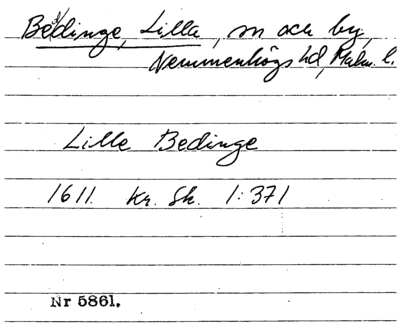 Beddinge, Lilla, sn och by,
Vemmenhögs hd, Malm. l.
Lille Bedinge
1611. Kr. Sk. 1:371
Nr 5861.